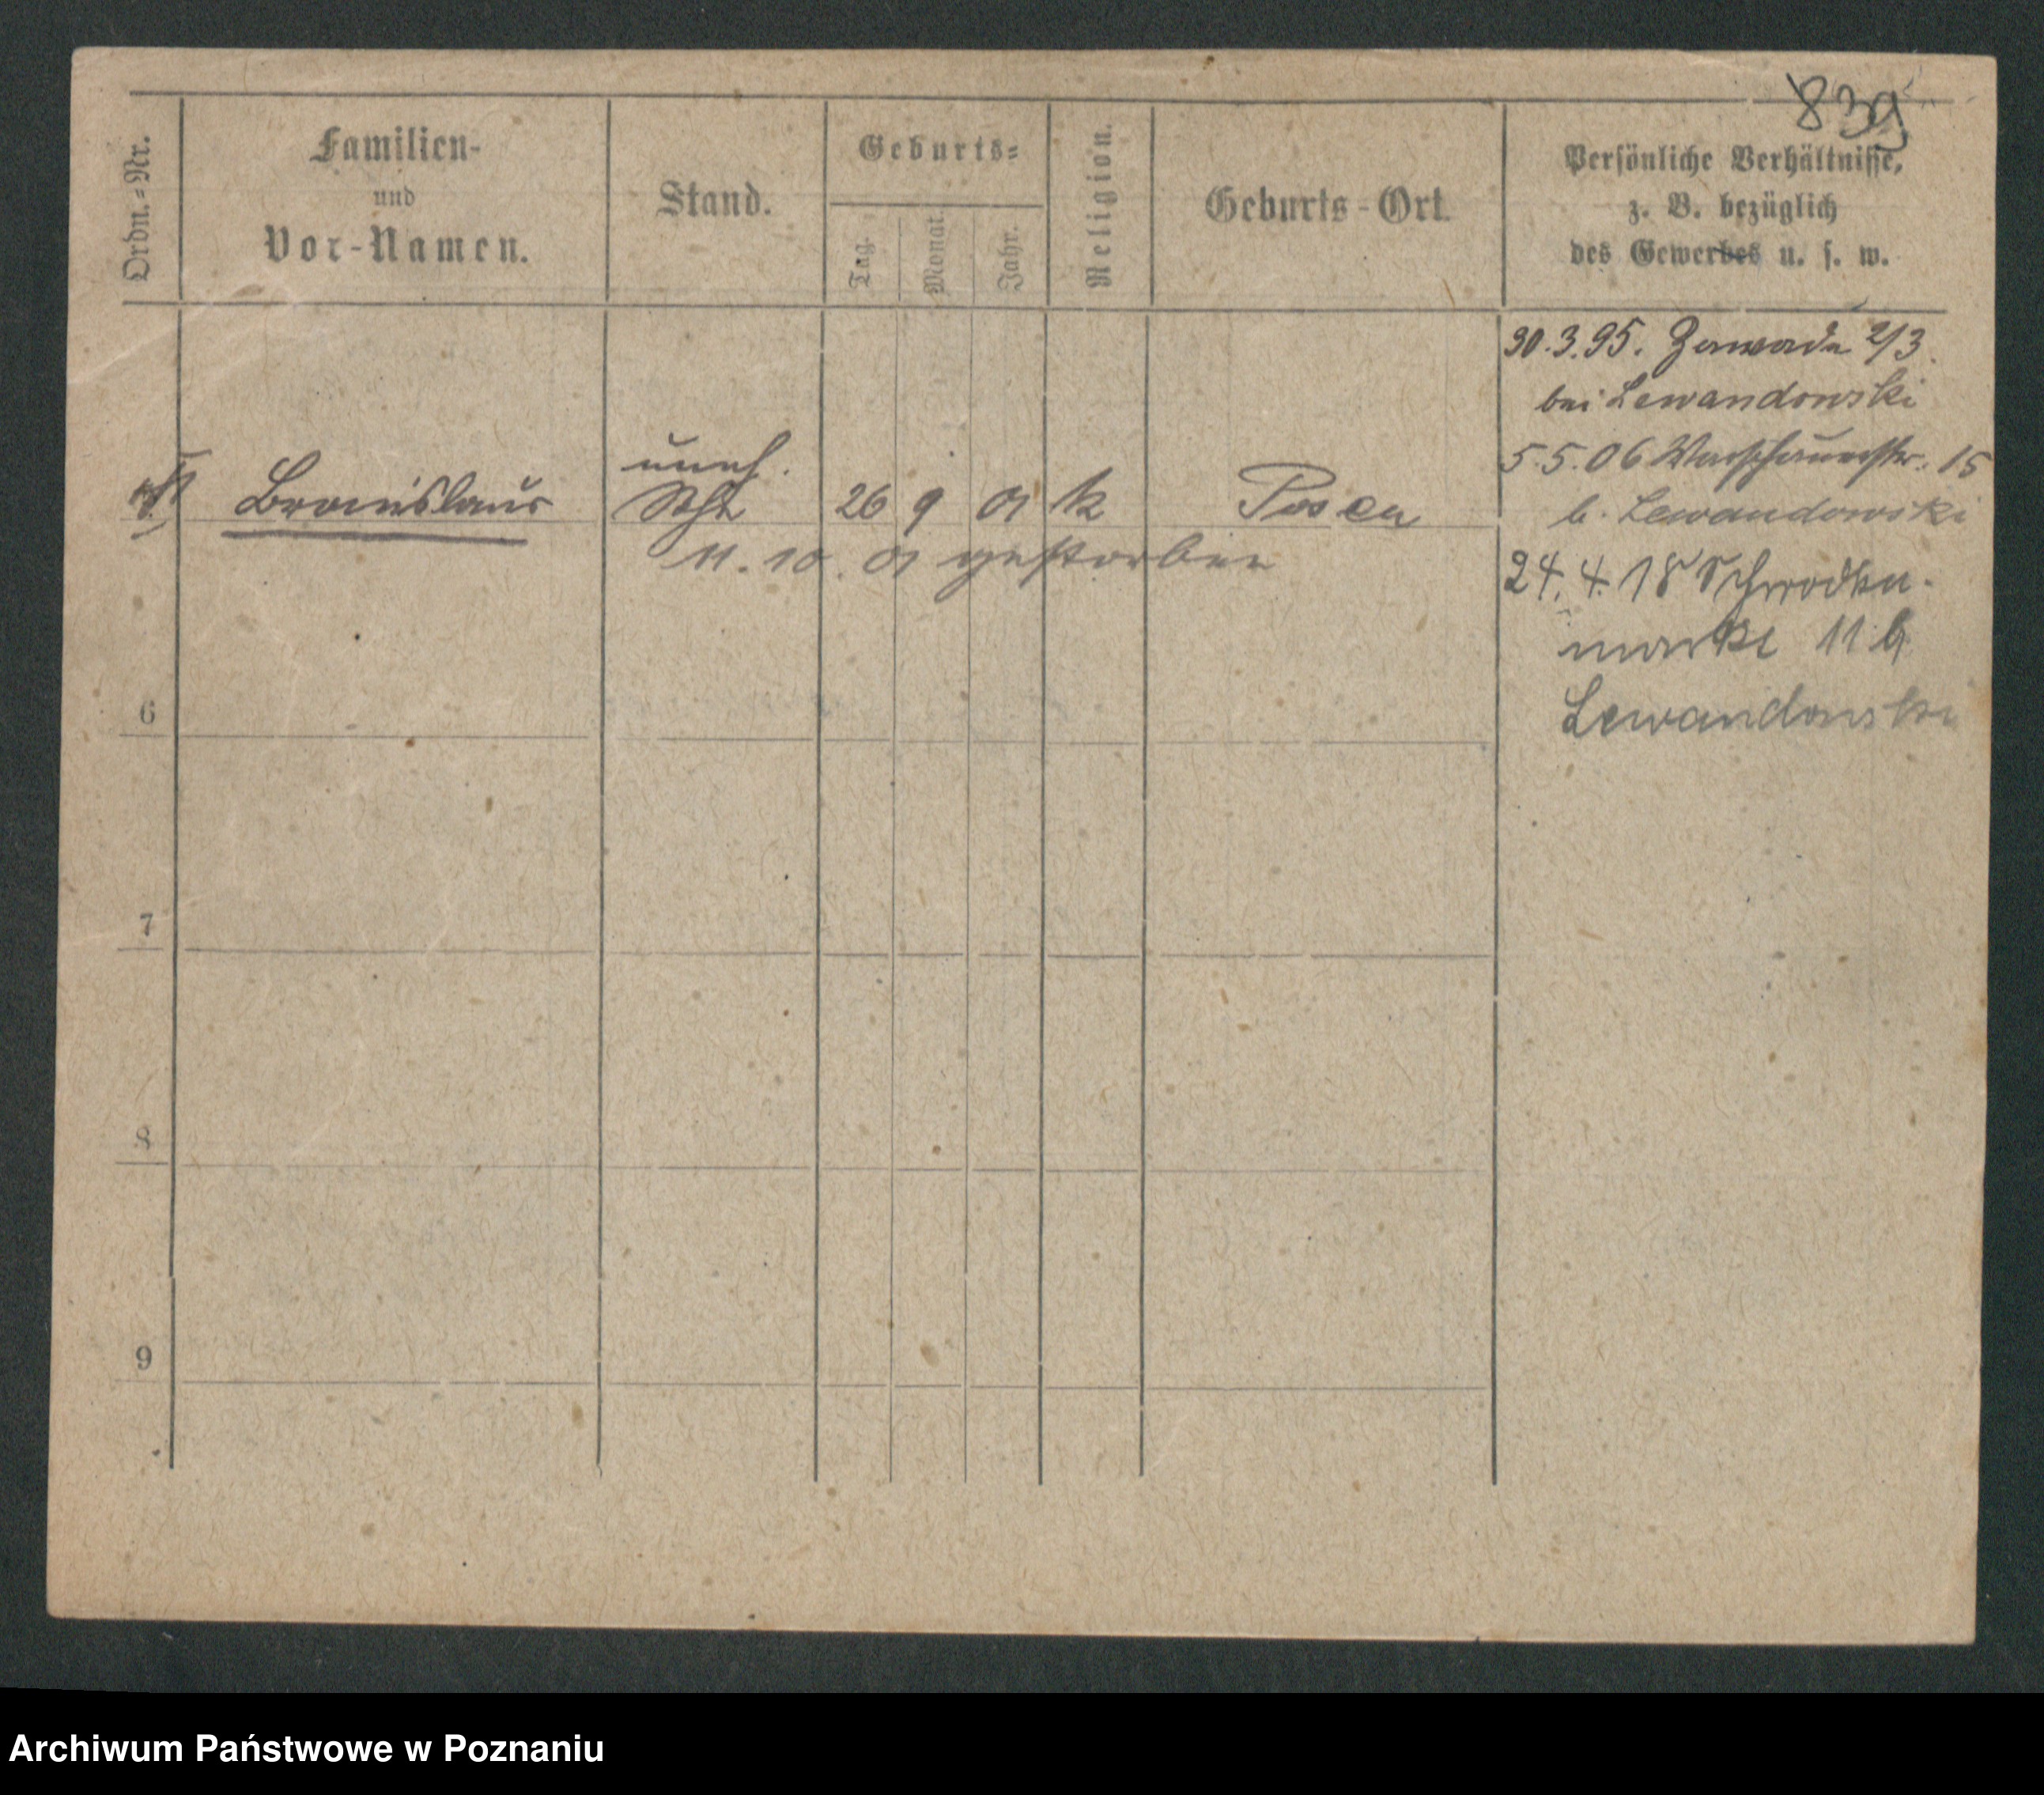 839
Ordn.=Nr.
Familien-
und
Vor-Namen.
Stand.
Geburts=
Tag.
Monat.
Jahr.
Religion.
Geburts-Ort.
Persönliche Verhältnisse,
z. B. bezüglich
des Gewerbes u. s. w.
30.3.95. Zawade 2/3
bei Lewandowski
5.5.06 Warschauerstr. 15
b. Lewandowski
24.4.18 Schrodka-
markt 11 b
Lewandowski
uneh.
Bronislaus
26 9 01 k Posen
11.10.01 gestorben
6
7
8
9
Archiwum Państwowe w Poznaniu